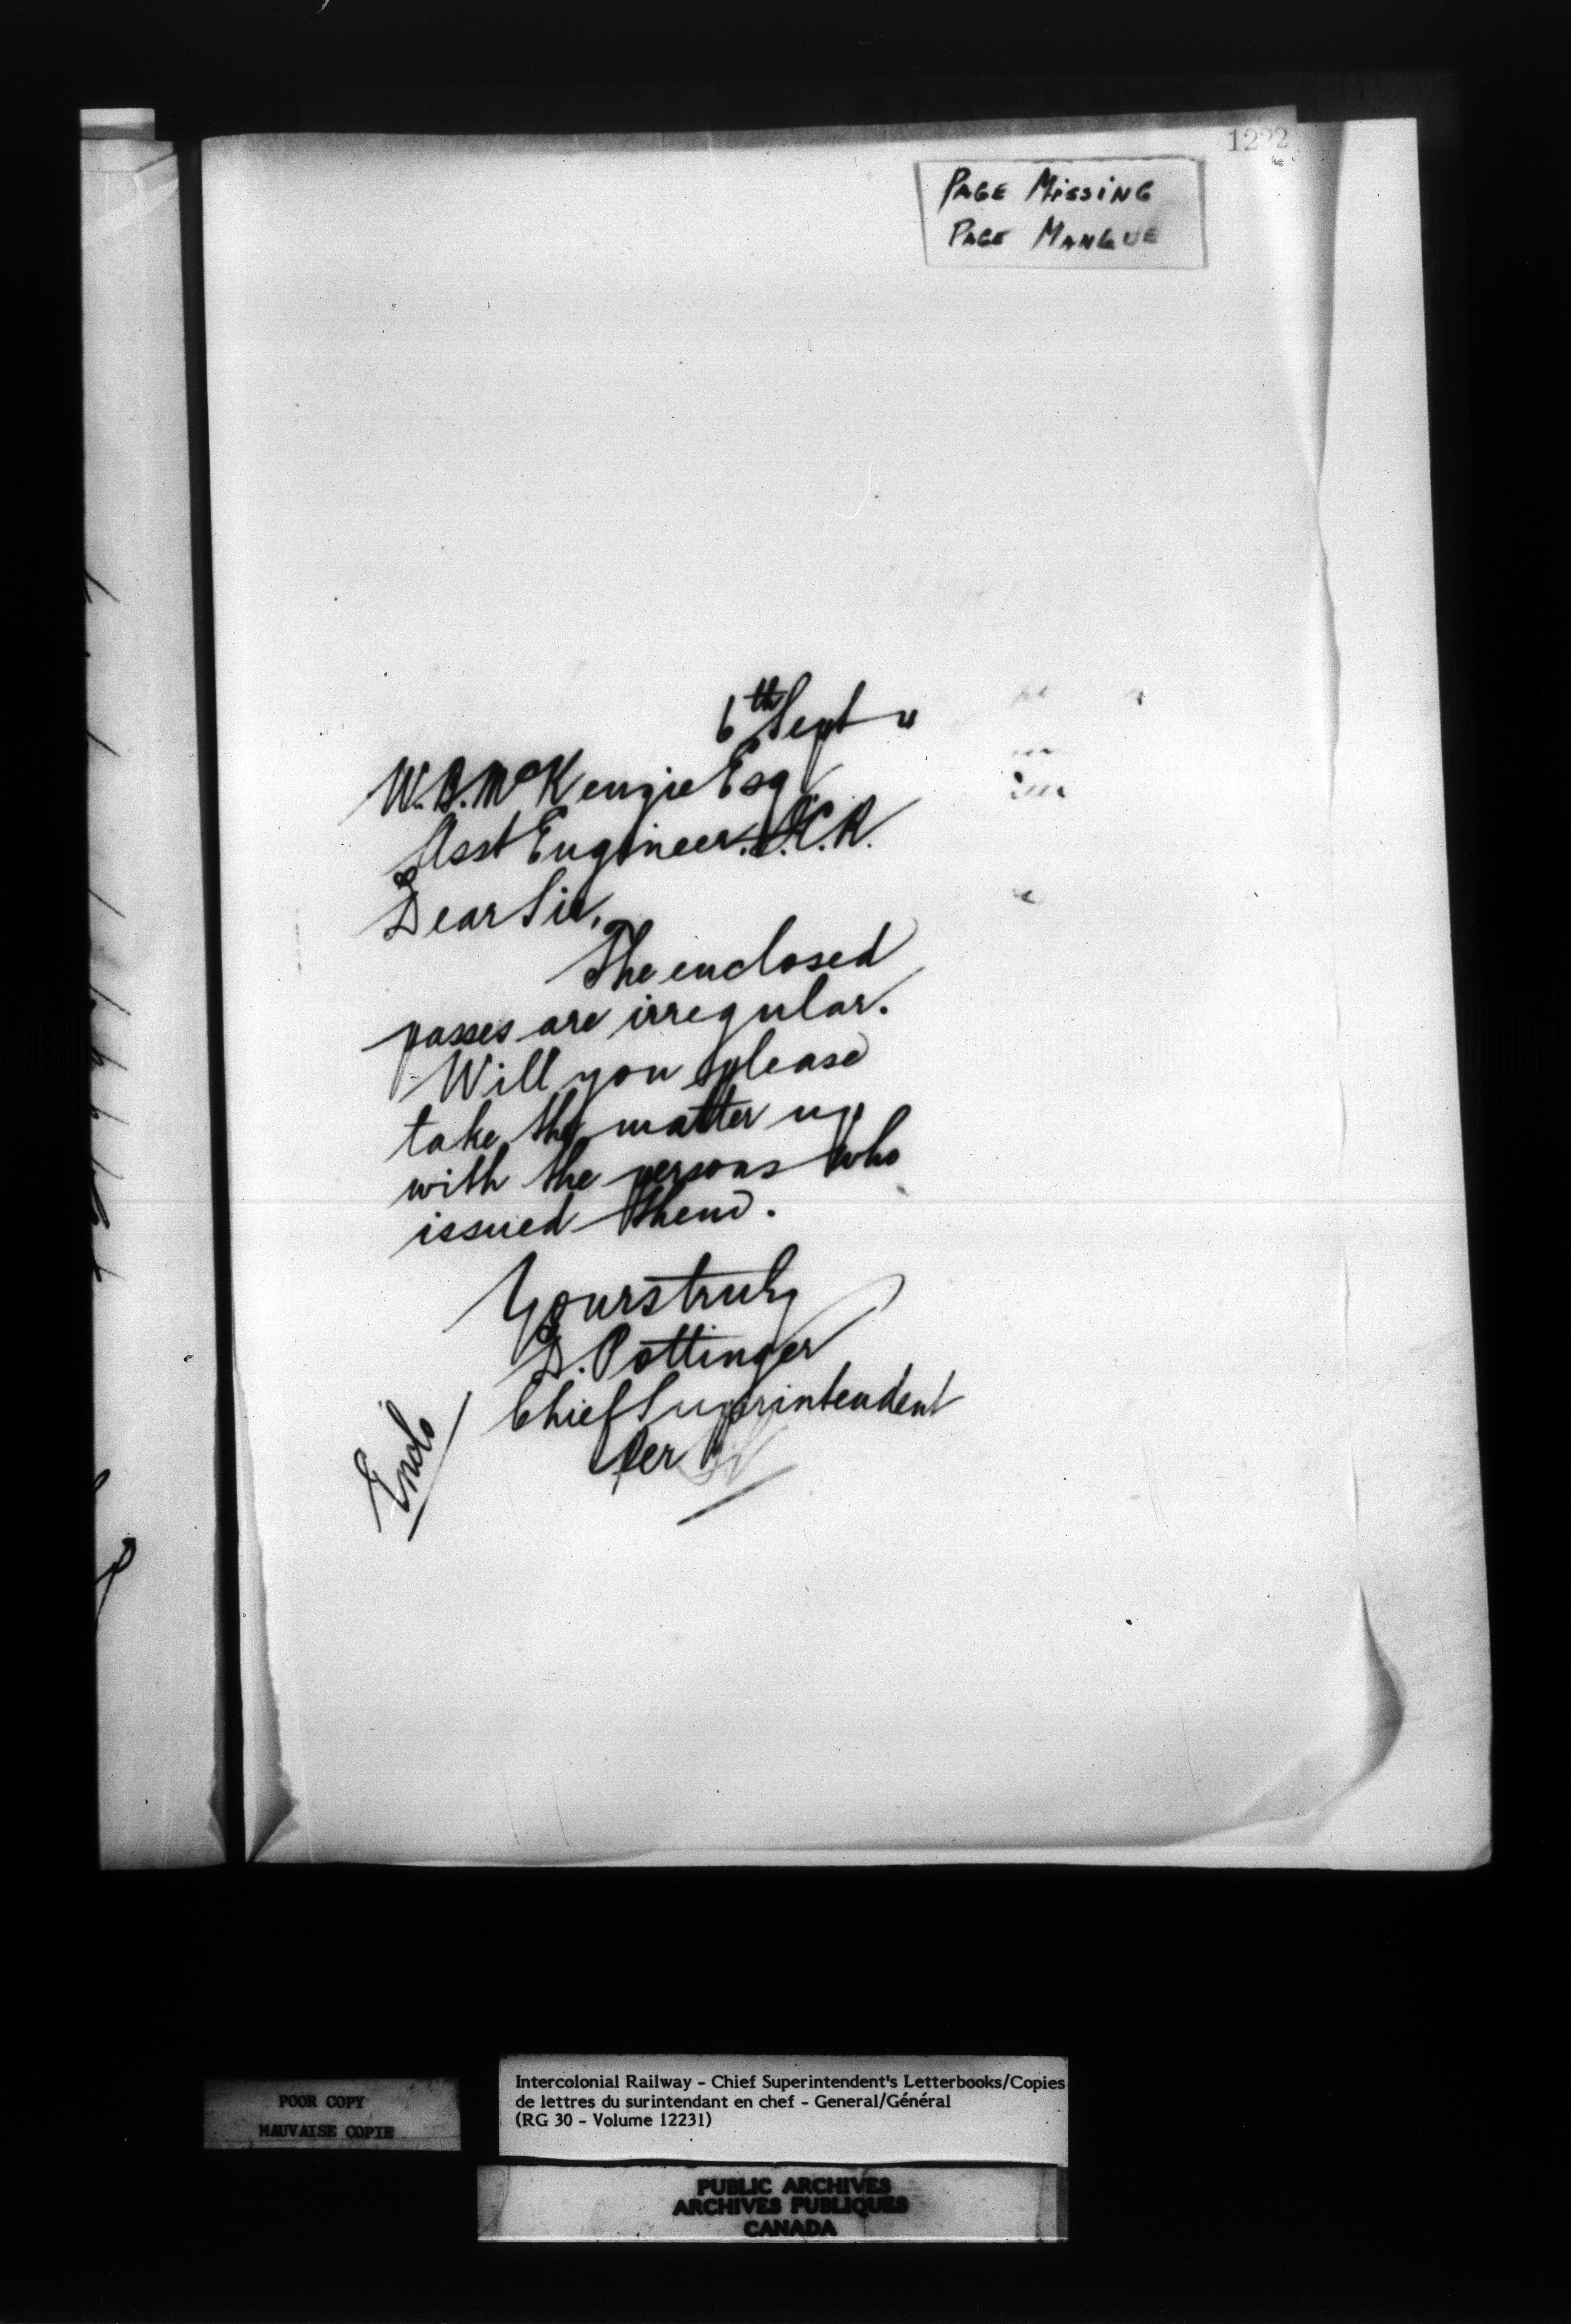 PAGE MISSING
PAGE MANQUE
6th Sept "
W. B. McKenzie Esq
Asst Engineer. I.C.R.
Dear Sir,
The enclosed
passes are irregular.
Will you please
take the matter up
with the persons who
issued them.
Yours truly
D. Pottinger
Chief Superintendent
Per
Enclo
POOR COPY
MAUVAISE COPIE
Intercolonial Railway - Chief Superintendent's Letterbooks/Copies
de lettres du surintendant en chef - General/Général
(RG 30 - Volume 12231)
PUBLIC ARCHIVES
ARCHIVES PUBLIQUES
CANADA